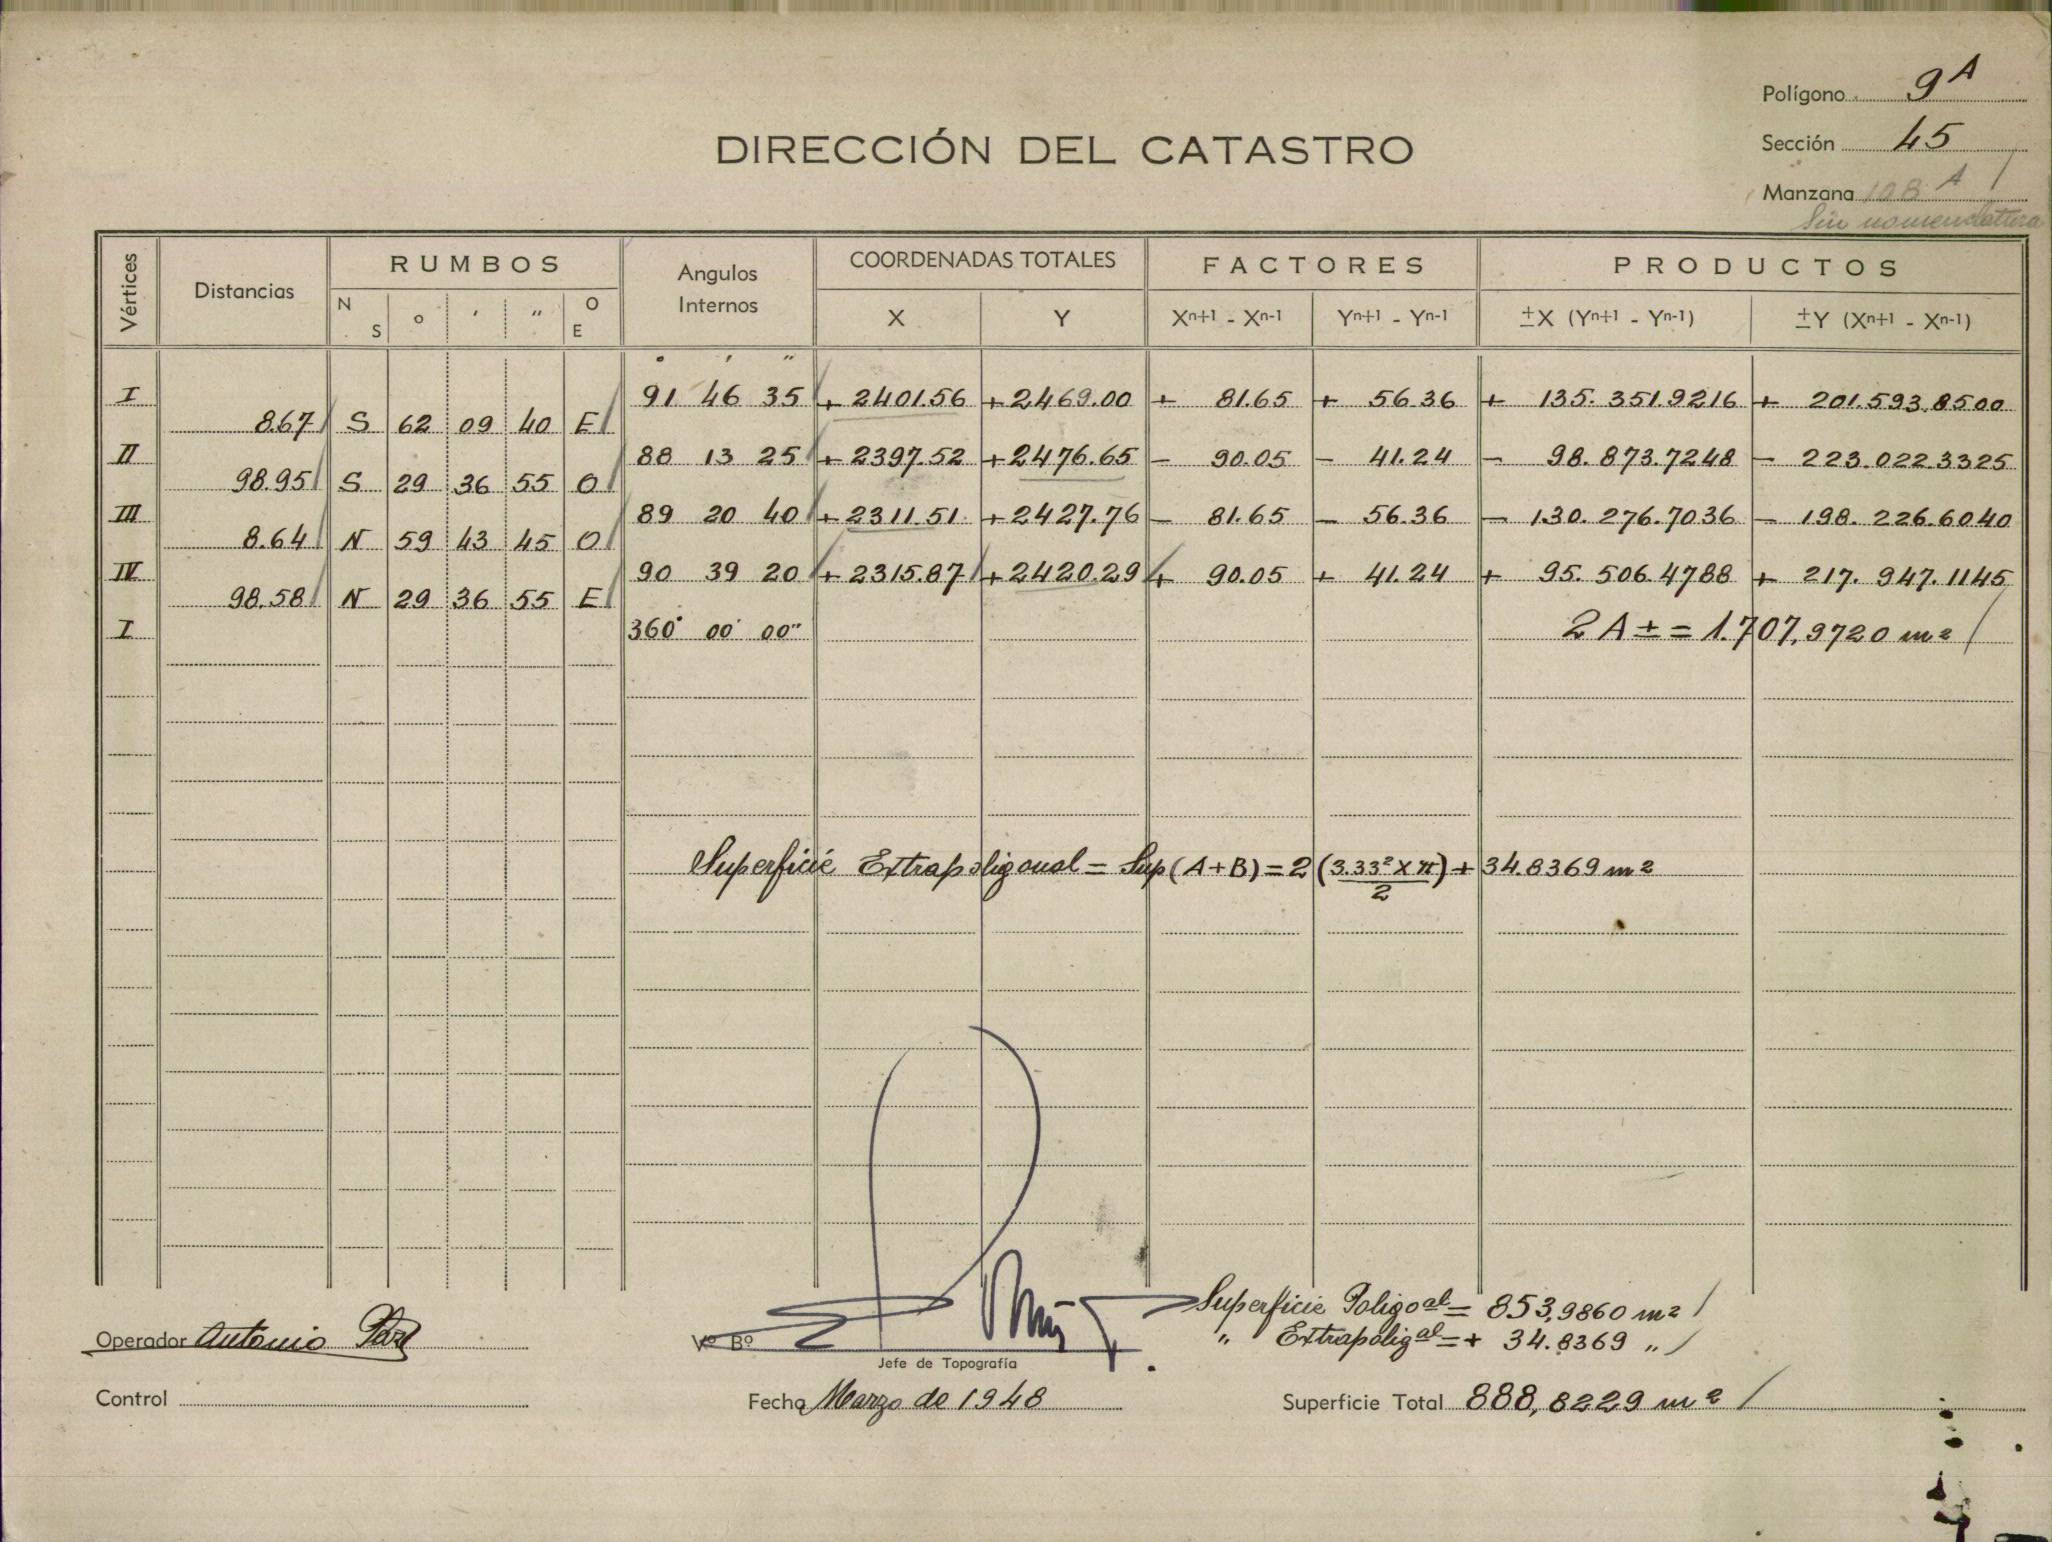 Polígono 9A
Sección 45
DIRECCIÓN DEL CATASTRO
Manzana 108 A
Sin nomenclatura
Vértices Distancias RUMBOS Angulos Internos COORDENADAS TOTALES FACTORES PRODUCTOS
N S o ' " O E X Y Xn+1 - Xn-1 Yn+1 - Yn-1 ±X (Yn+1 - Yn-1) ±Y (Xn+1 - Xn-1)
° ' "
I 91 46 35 + 2401.56 + 2469.00 + 81.65 + 56.36 + 135.351.9216 + 201.593,8500
8.67 S 62 09 40 E
II 88 13 25 + 2397.52 + 2476.65 - 90.05 - 41.24 - 98.873.7248 - 223.022.3325
98.95 S 29 36 55 O
III 89 20 40 + 2311.51 + 2427.76 - 81.65 - 56.36 - 130.276.7036 - 198.226.6040
8.64 N 59 43 45 O
IV 90 39 20 + 2315.87 + 2420.29 + 90.05 + 41.24 + 95.506.4788 + 217.947.1145
98.58 N 29 36 55 E
I 360° 00' 00" 2 A ± = 1.707,9720 m2
Superficie Extrapoligonal = Sup (A+B) = 2 (3.33² x π / 2) + 34.8369 m2
Superficie Poligoal = 853,9860 m2
Operador Antonio
Vº Bº
" Extrapoligal = + 34.8369 "
Jefe de Topografía
Control
Fecha Marzo de 1948
Superficie Total 888,8229 m2